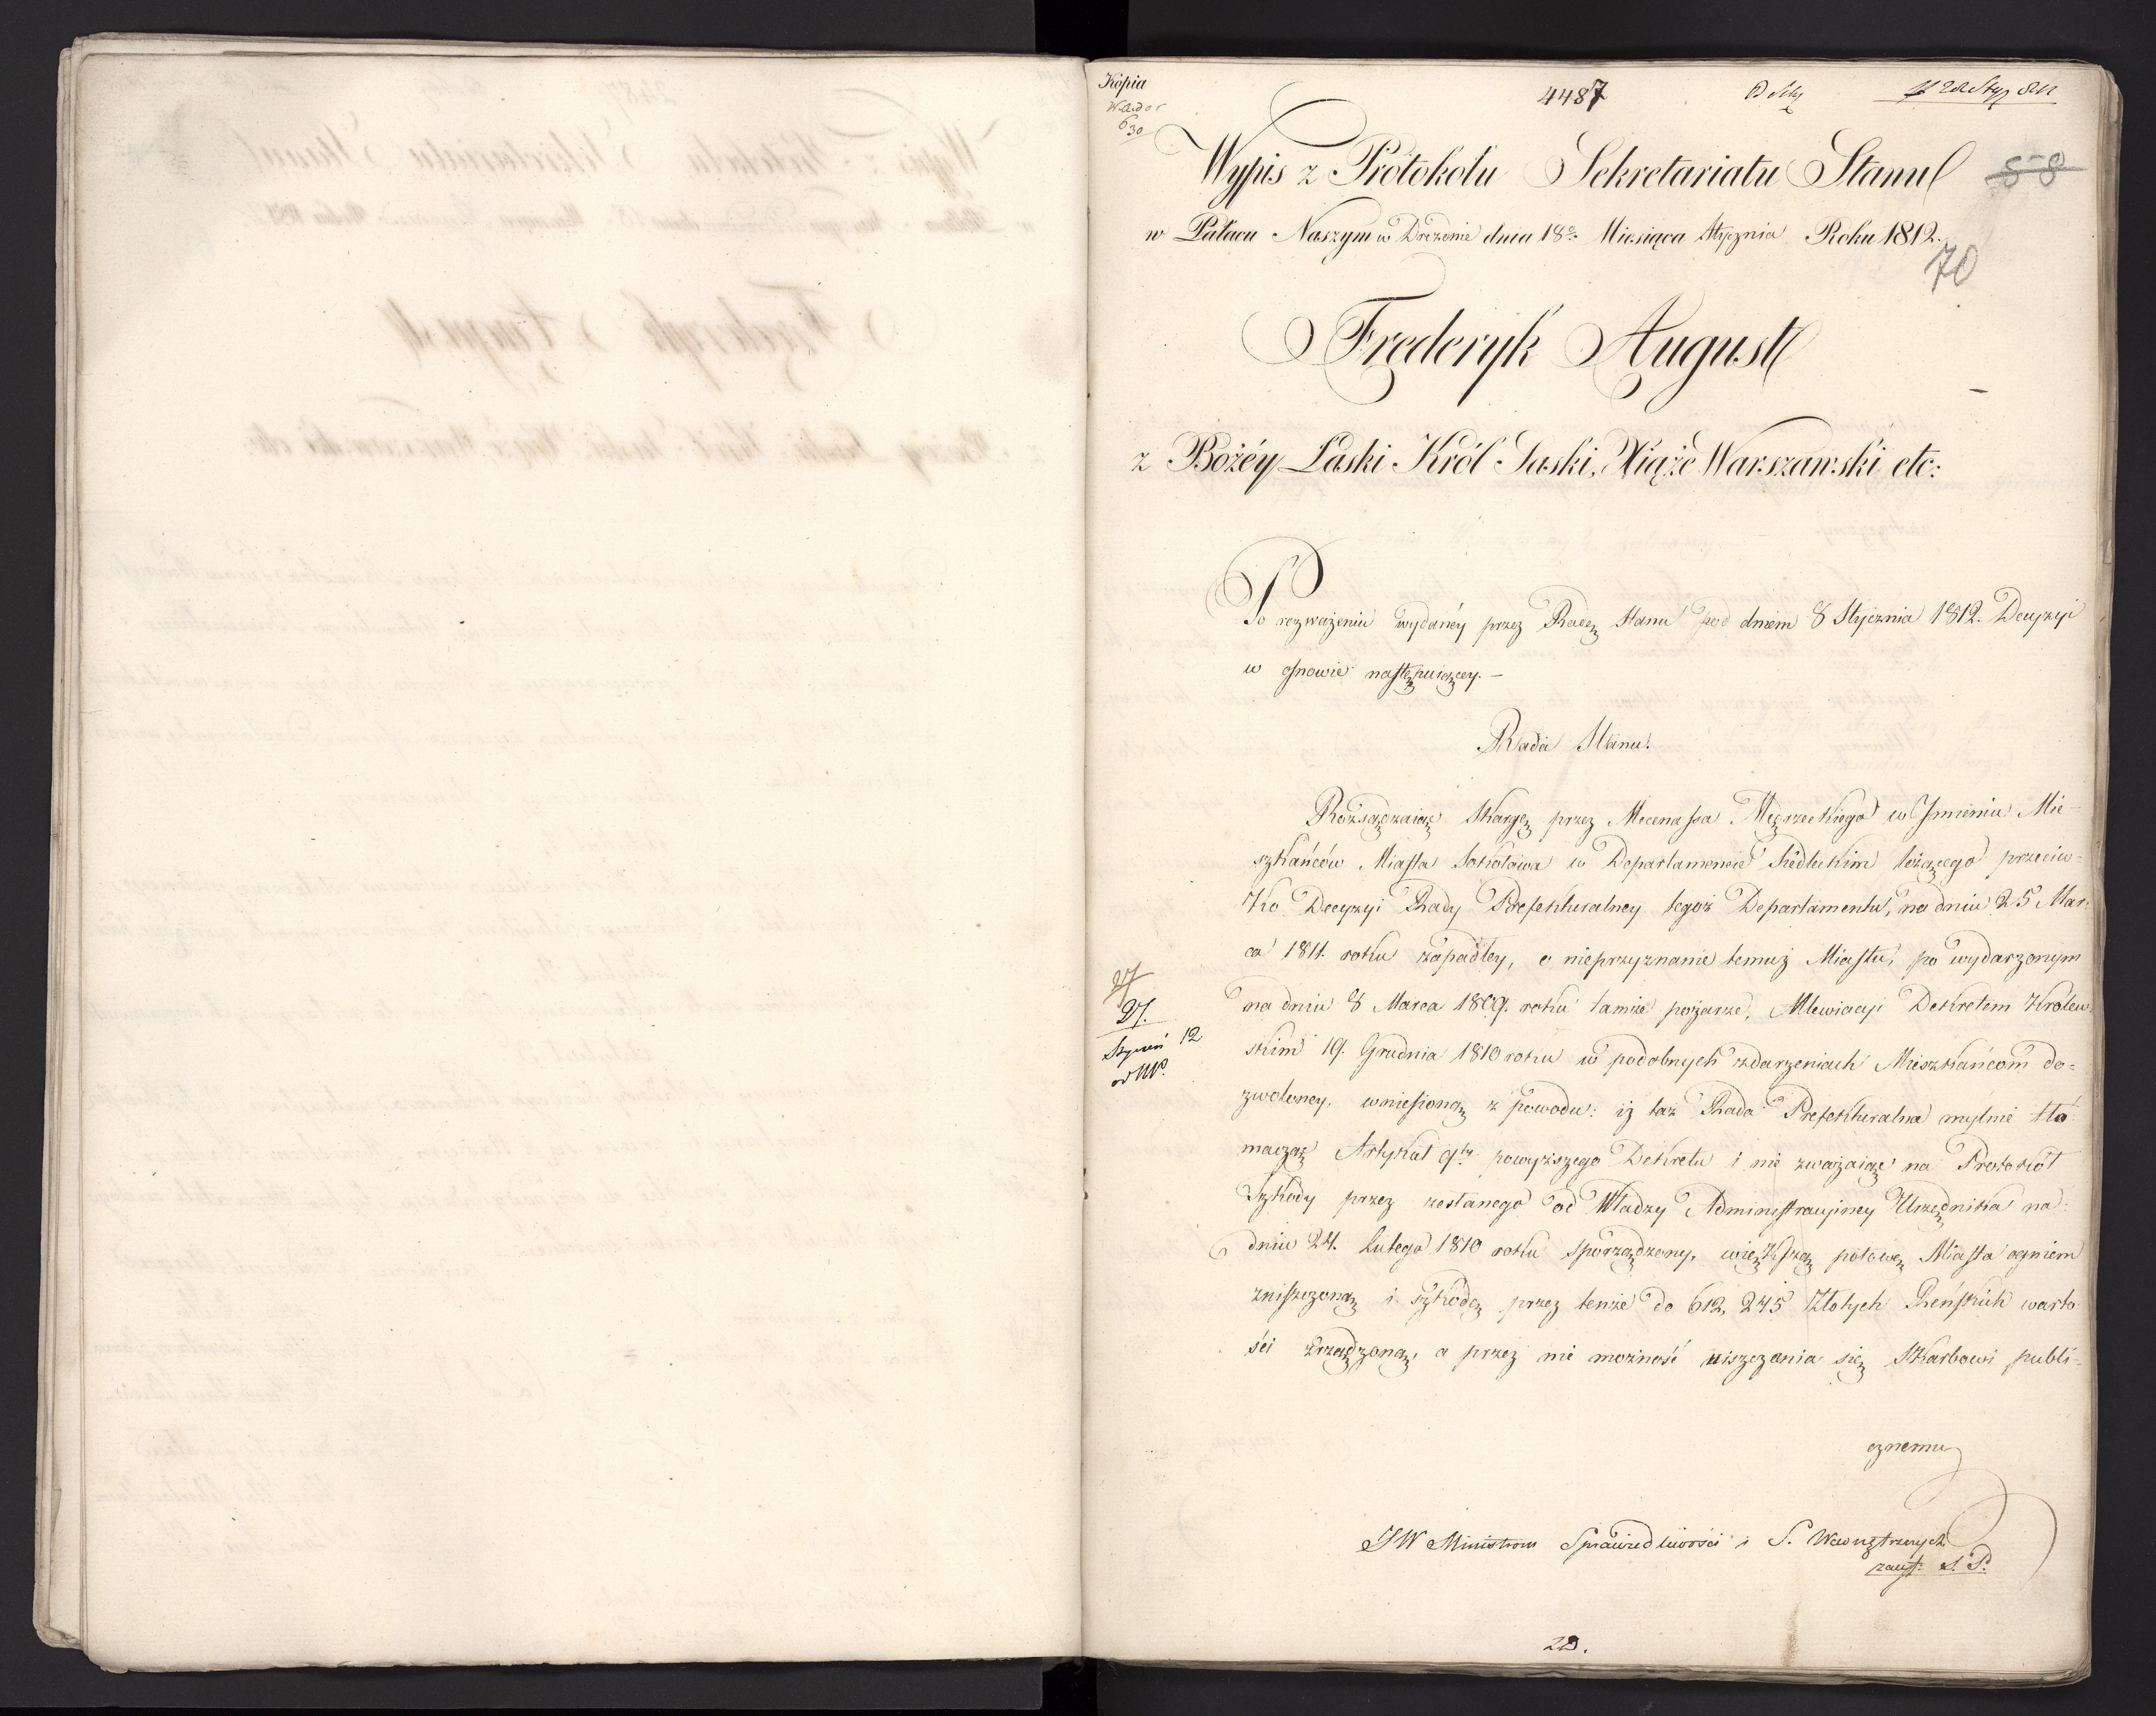 Kopia
630
4487
Wypis z Protokołu Sekretariatu Stanu
58
w Pałacu Naszym w Dreznie dnia 18º Miesiąca Stycznia Roku 1812.
70
Frederyk August
z Bożéy Łaski Król Saski, Xiąże Warszawski etc:
Po rozważeniu wydanéy przez Radę Stanu pod dniem 8 Stycznia 1812. Decyzyi
w osnowie następuiącey. –
Rada Stanu.
Rozsądzaiąc Skargę przez Mecenassa Męrzeckiego w Imieniu Mie-
szkańców Miasta Sokołowa w Departamencie Siedleckim leżącego przeciw-
ko Decyzyi Rady Prefekturalney tegoż Departamentu, na dniu 25 Mar-
ca 1811. roku zapadłey, o nieprzyznanie temuż Miastu, po wydarzonym
na dniu 8 Marca 1809. roku tamże pożarze, Allewiacyi Dekretem Królew-
skim 19. Grudnia 1810 roku w podobnych zdarzeniach Mieszkańcom do=
zwoloney, wniesioną z powodu: iż taż Rada Prefekturalna mylnie tło-
macząc Artykuł 9ty powyższego Dekretu i nie zważaiąc na Protokół
Szkody przez zesłanego od Władzy Administracyiney Urzędnika na
dniu 24. Lutego 1810 roku sporządzony, większą połowę Miasta ogniem
zniszczoną i szkodę przez tenże do 612,245 Złotych Reńskich warto-
ści zrządzoną, a przez nie możność uiszczania się Skarbowi publi-
27.
Styczeń 12
cznemu
JW Ministrom Sprawiedliwości i S. Wewnętrznych